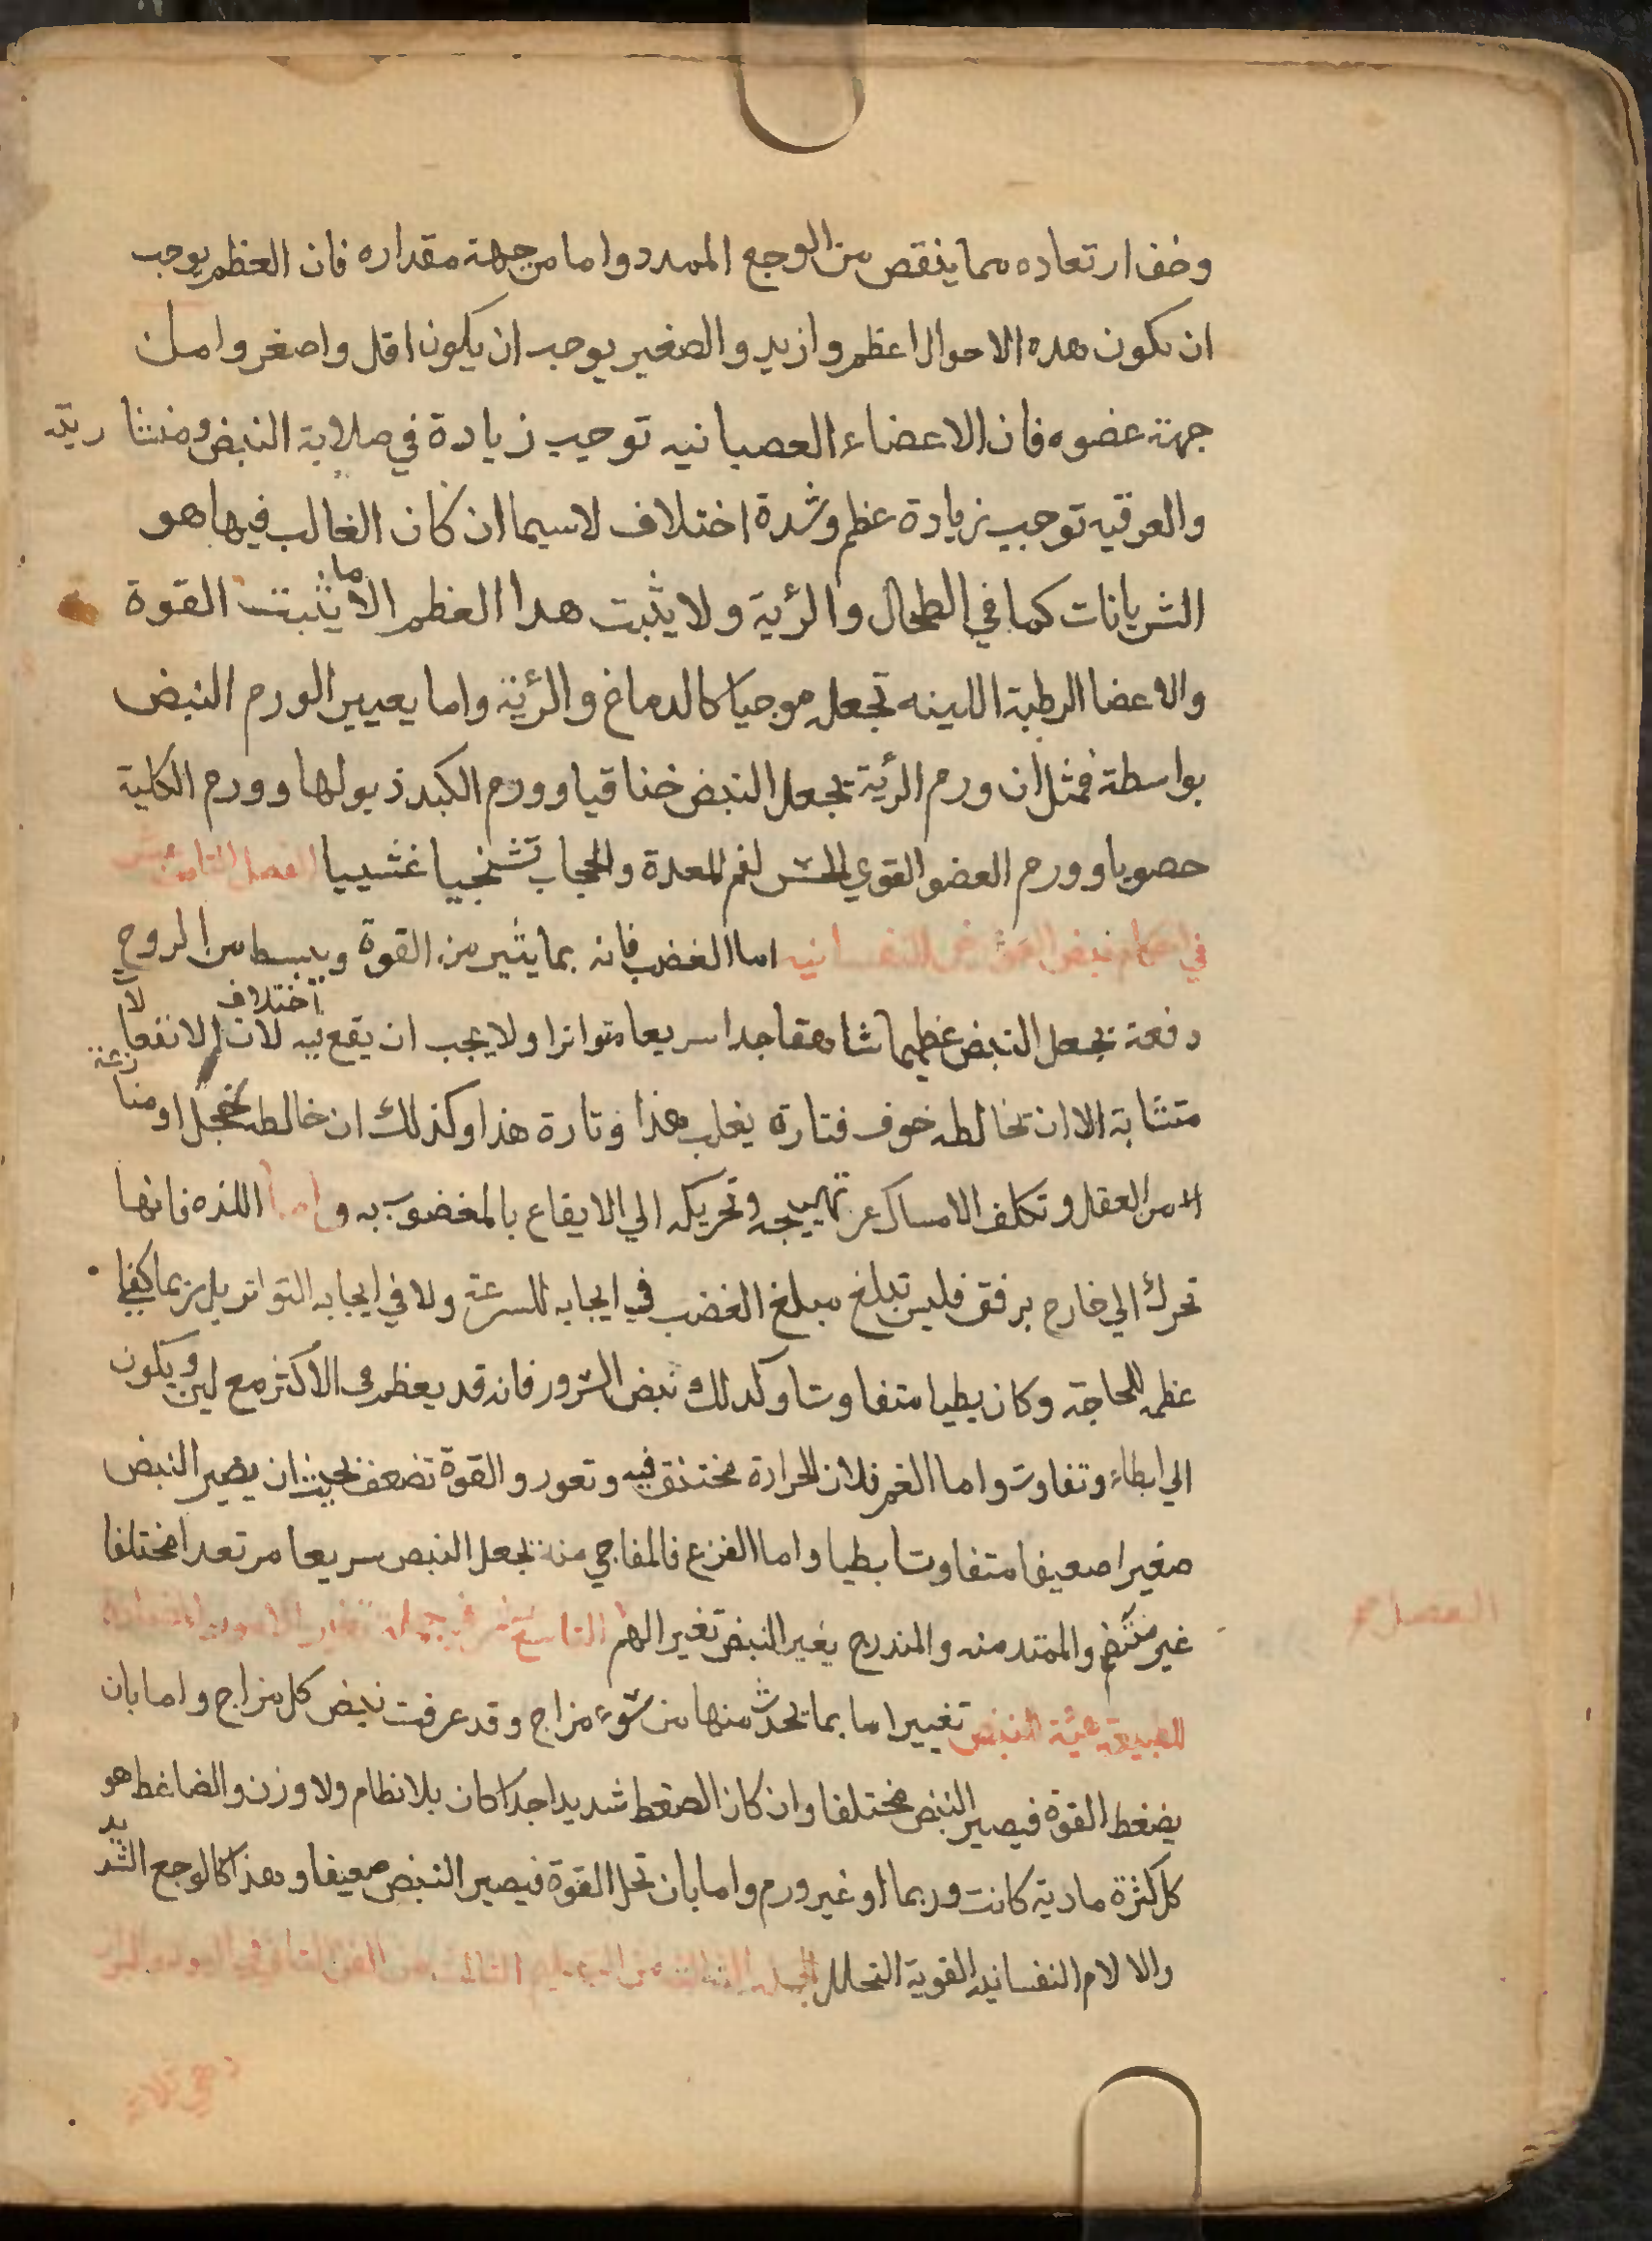 وخف ارتعاده مما ينقص من الوجع الممدد واما من جهة مقداره فان العظم يوجب
ان يكون هده الاحوال اعظم وازيد والصغير يوجب ان يكون اقل واصغر واما من
جهة عضوه فان الاعضاء العصبانيه توجب زيادة في صلابة النبض ومنشاريته
والعرقيه توجب زيادة عظم وشدة اختلاف لاسيما ان كان الغالب فيها هو
الشريانات كما في الطحال والرئية ولا يثبت هدا العظم الا ما يثبت القوة
والاعضا الرطبة اللينه تجعله موجيا كالدماغ والرئية واما يعيير الورم النبض
بواسطة فمثل ان ورم الرئية يجعل النبض خناقيا وورم الكبد ذبولها وورم الكلية
حصويا وورم العضو القوي الحس لفم المعدة والحجاب تشنجيا غشييا الفصل الثامن عشر
في احكام نبض العوارض النفسانيه اما الغضب فانه بما يثير من القوة ويبسط من الروح
دفعة يجعل النبض عظيما شاهقا جدا سريعا متواترا ولا يجب ان يقع فيه اختلاف لان الانفعال
متشابة الا ان تخالطه خوف فتارة يغلب هذا وتارة هذا وكذلك ان خالطه خجل او منازعة
من العقل وتكلف الامساك عن تهييجه وتحريكه الي الايقاع بالمغضوب به واما اللذه فانها
تحرك الي خارج برفق فليس تبلغ مبلغ الغضب في ايجابه للسرعة ولا في ايجابه التواتر بل ربما كفي
عظمه للحاجة وكان بطيا متفاوتا وكدلك نبض السرور فانه قد يعظم في الاكثر مع لين ويكون
الي ابطاء وتفاوت واما الغم فلان الحرارة تختنق فيه وتعور والقوة تضعف يجب ان يصير النبض
صغيرا صعيفا متفاوتا بطيا واما الفزع فالمفاجي منه يجعل النبض سريعا مرتعدا مختلفا
غير منتظم والممتد منه والمندرج يغير النبض تغير الهم التاسع عشر في جملة تغير الامور المضادة
الفصل
للطبيعة هيئة النبض تغييرا اما بما يحدث منها من سوء مزاج وقد عرفت نبض كل مزاج واما بان
يضغط القوة فيصير النبض مختلفا وان كان الضغط شديدا جدا كان بلا نظام ولا وزن والضاغط هو
كل كثرة مادية كانت وربما او غير ورم واما بان تحل القوة فيصير النبض صعيفا وهذا كالوجع الشديد
والالام النفسانيه القوية التحلل الجمله الثانية من التعليم الثالث من الفن الثاني في البول والبراز
وهي ثلاثة